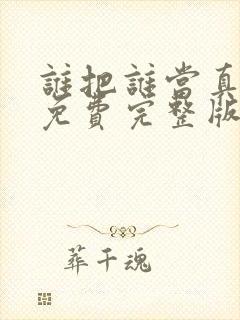 誰把誰當真
免費完整版
葬千魂